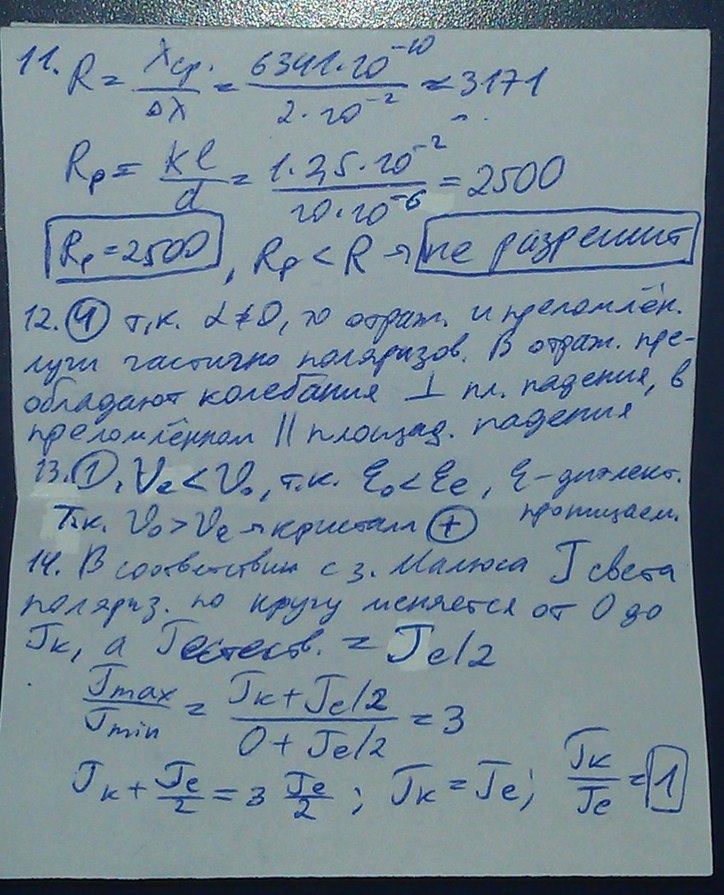 11. R = λср. / Δλ = 6341·10⁻¹⁰ / 2·10⁻² ≈ 3171
Rр = kl / d = 1·2,5·10⁻² / 10·10⁻⁶ = 2500
Rр = 2500, Rр < R → не разрешит
12. ④ т.к. α ≠ 0, то отраж. и преломлён.
лучи частично поляризов. В отраж. пре-
обладают колебания ⊥ пл. падения, в
преломлённом || площад. падения
13. ①, Ve < Vo, т.к. εo < εe, ε - диэлект.
Т.к. Vo > Ve → кристалл ⊕ проницаем.
14. В соответствии с з. Малюса J света
поляриз. по кругу меняется от 0 до
Jк, а Jестеств. = Je/2
Jmax / Jmin = Jк + Je/2 / 0 + Je/2 = 3
Jк + Je/2 = 3 Je/2 ; Jк = Je; Jк/Je = 1